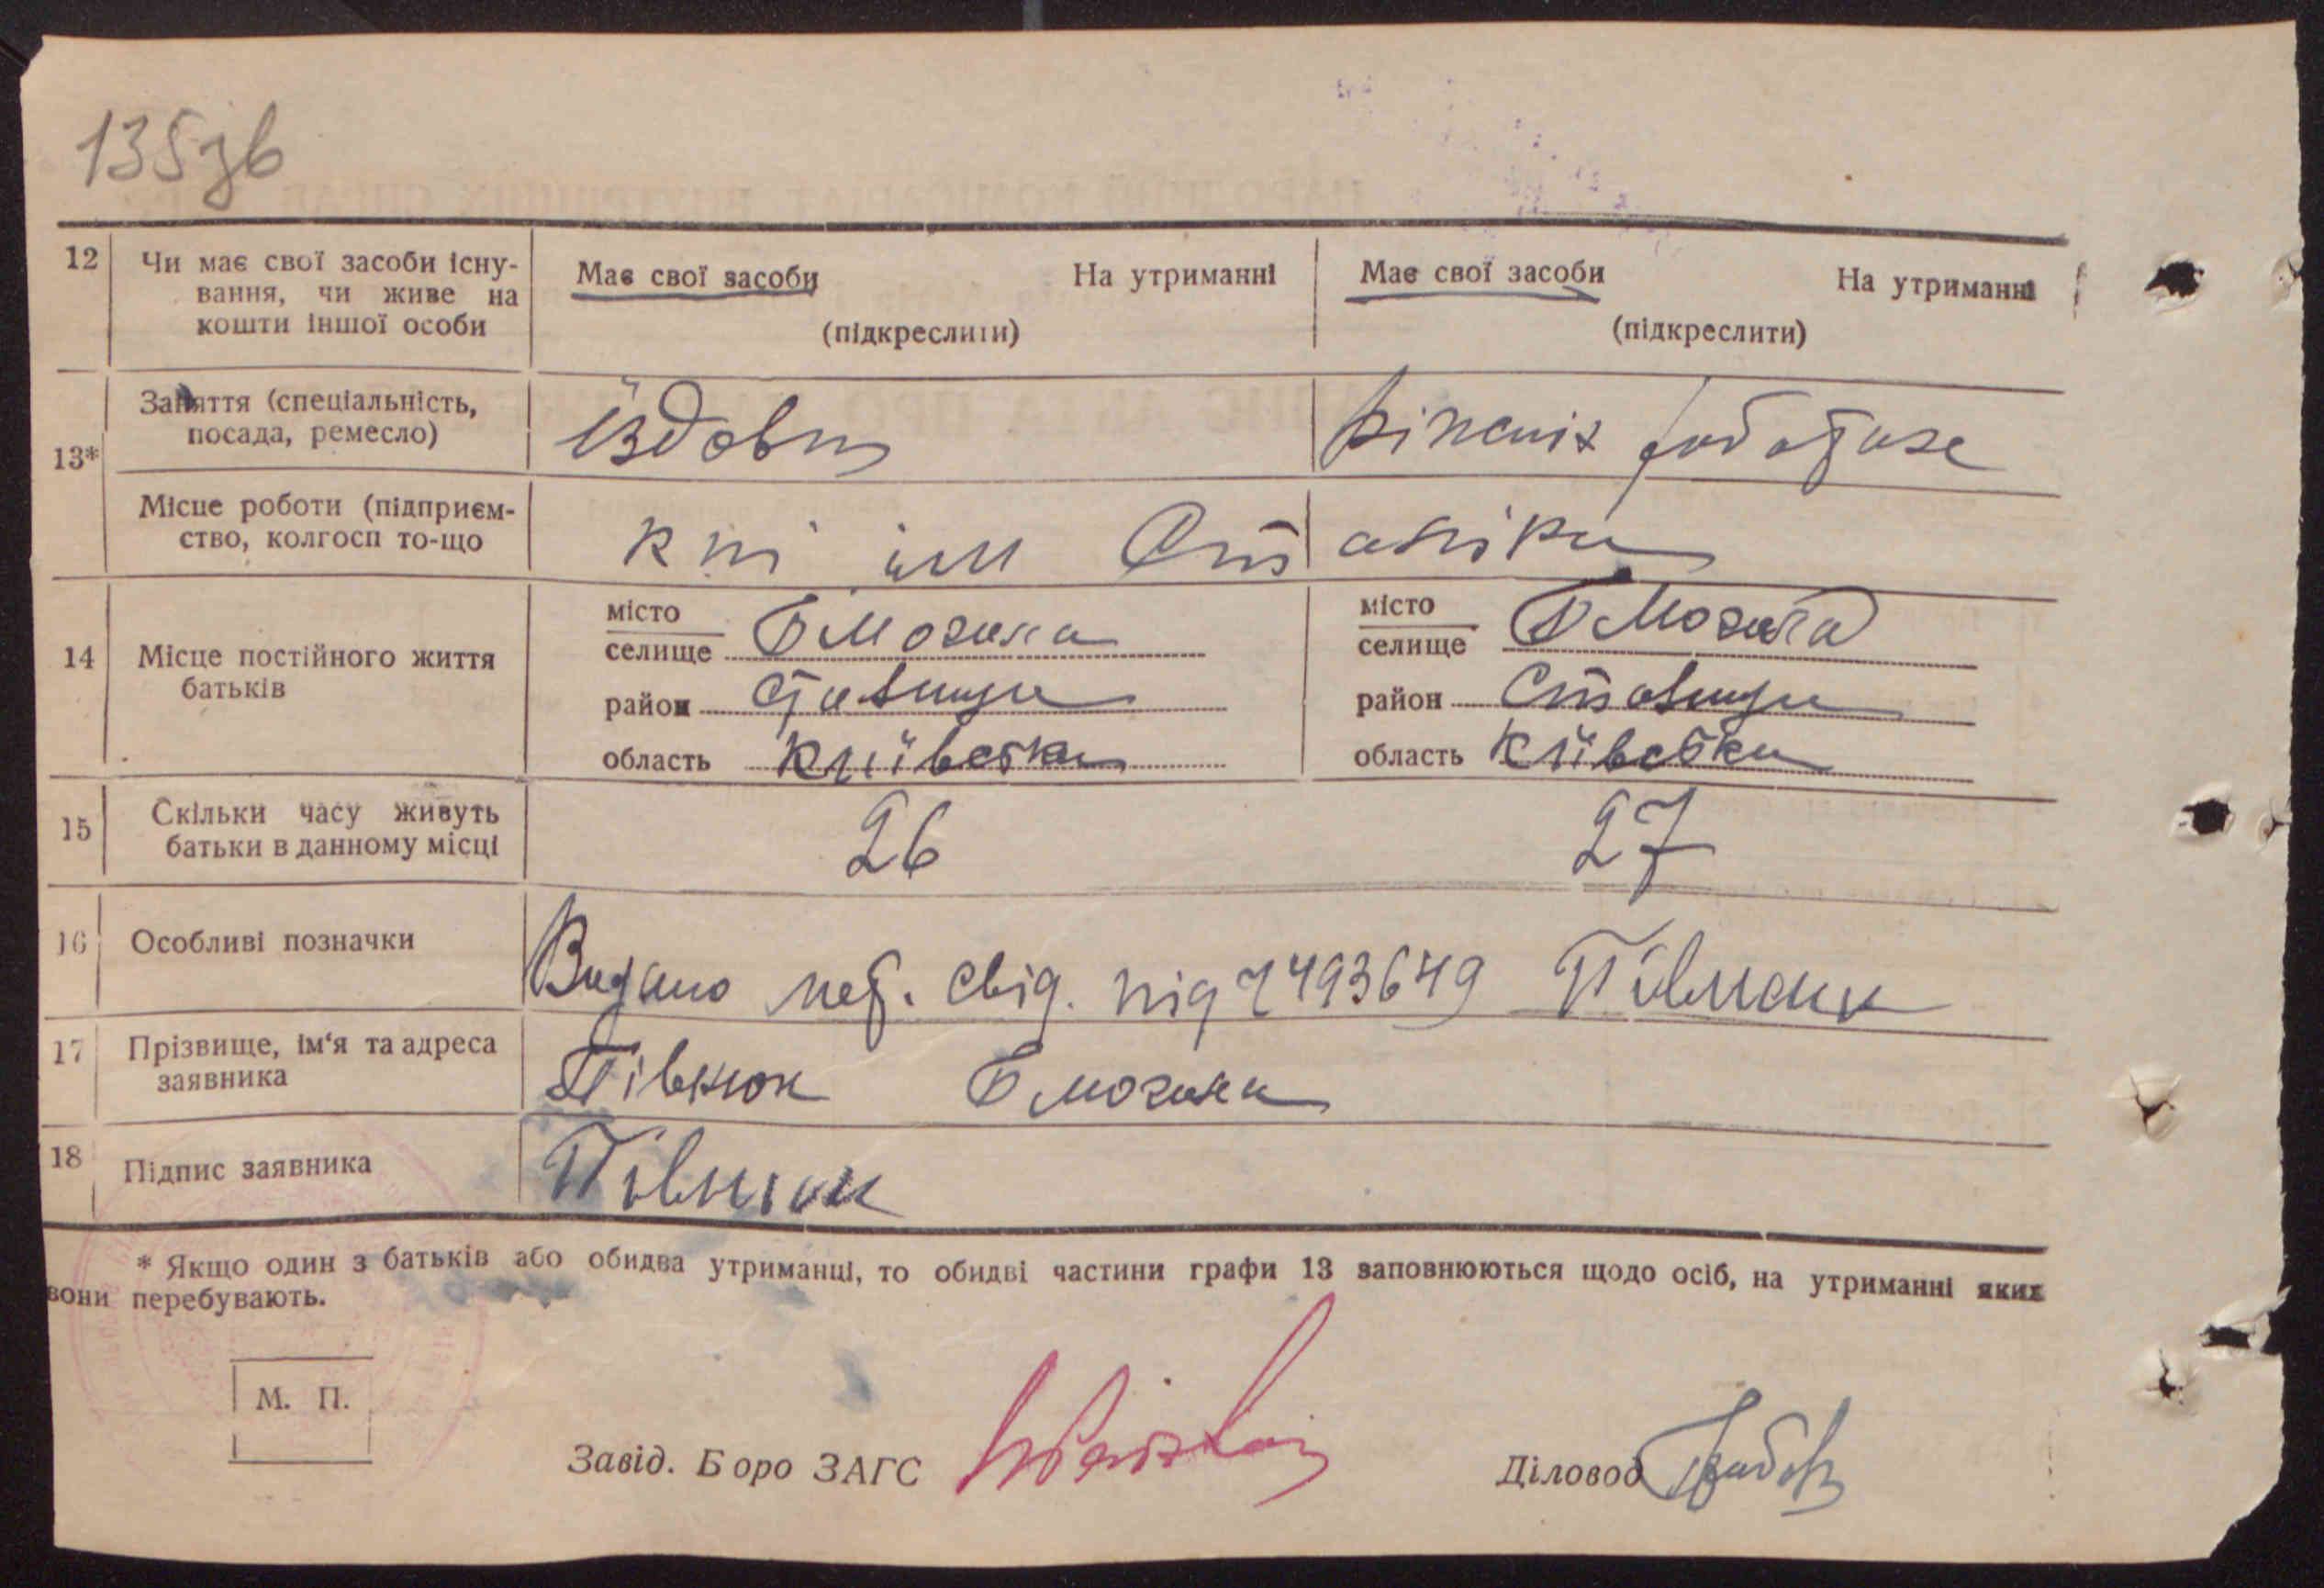 135зв
12 Чи має свої засоби існу- Має свої засоби На утриманні Має свої засоби На утриманні
вання, чи живе на
кошти іншої особи (підкреслити) (підкреслити)
Заняття (спеціальність, їздовий
13* посада, ремесло)
Місце роботи (підприєм-
ство, колгосп то-що ім
14 Місце постійного життя
батьків
місто Б Могила місто Б Могила
селище селище
район Ставище район Ставище
область Київська область Київська
15 Скільки часу живуть 26 27
батьки в данному місці
16 Особливі позначки Видано свід. під 493649 Півнюк
17 Прізвище, ім‘я та адреса Півнюк Б могила
заявника
18 Підпис заявника Півнюк
* Якщо один з батьків або обидва утриманці, то обидві частини графи 13 заповнюються щодо осіб, на утриманні яких
вони перебувають.
М. П.
Завід. Боро ЗАГС Діловод